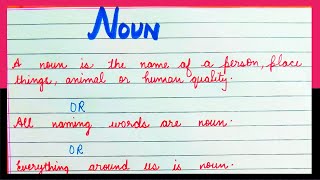 NOUN
A noun is the name of a person, place
things, animal or human quality.
OR
All naming words are noun.
OR
Everything around us is noun.